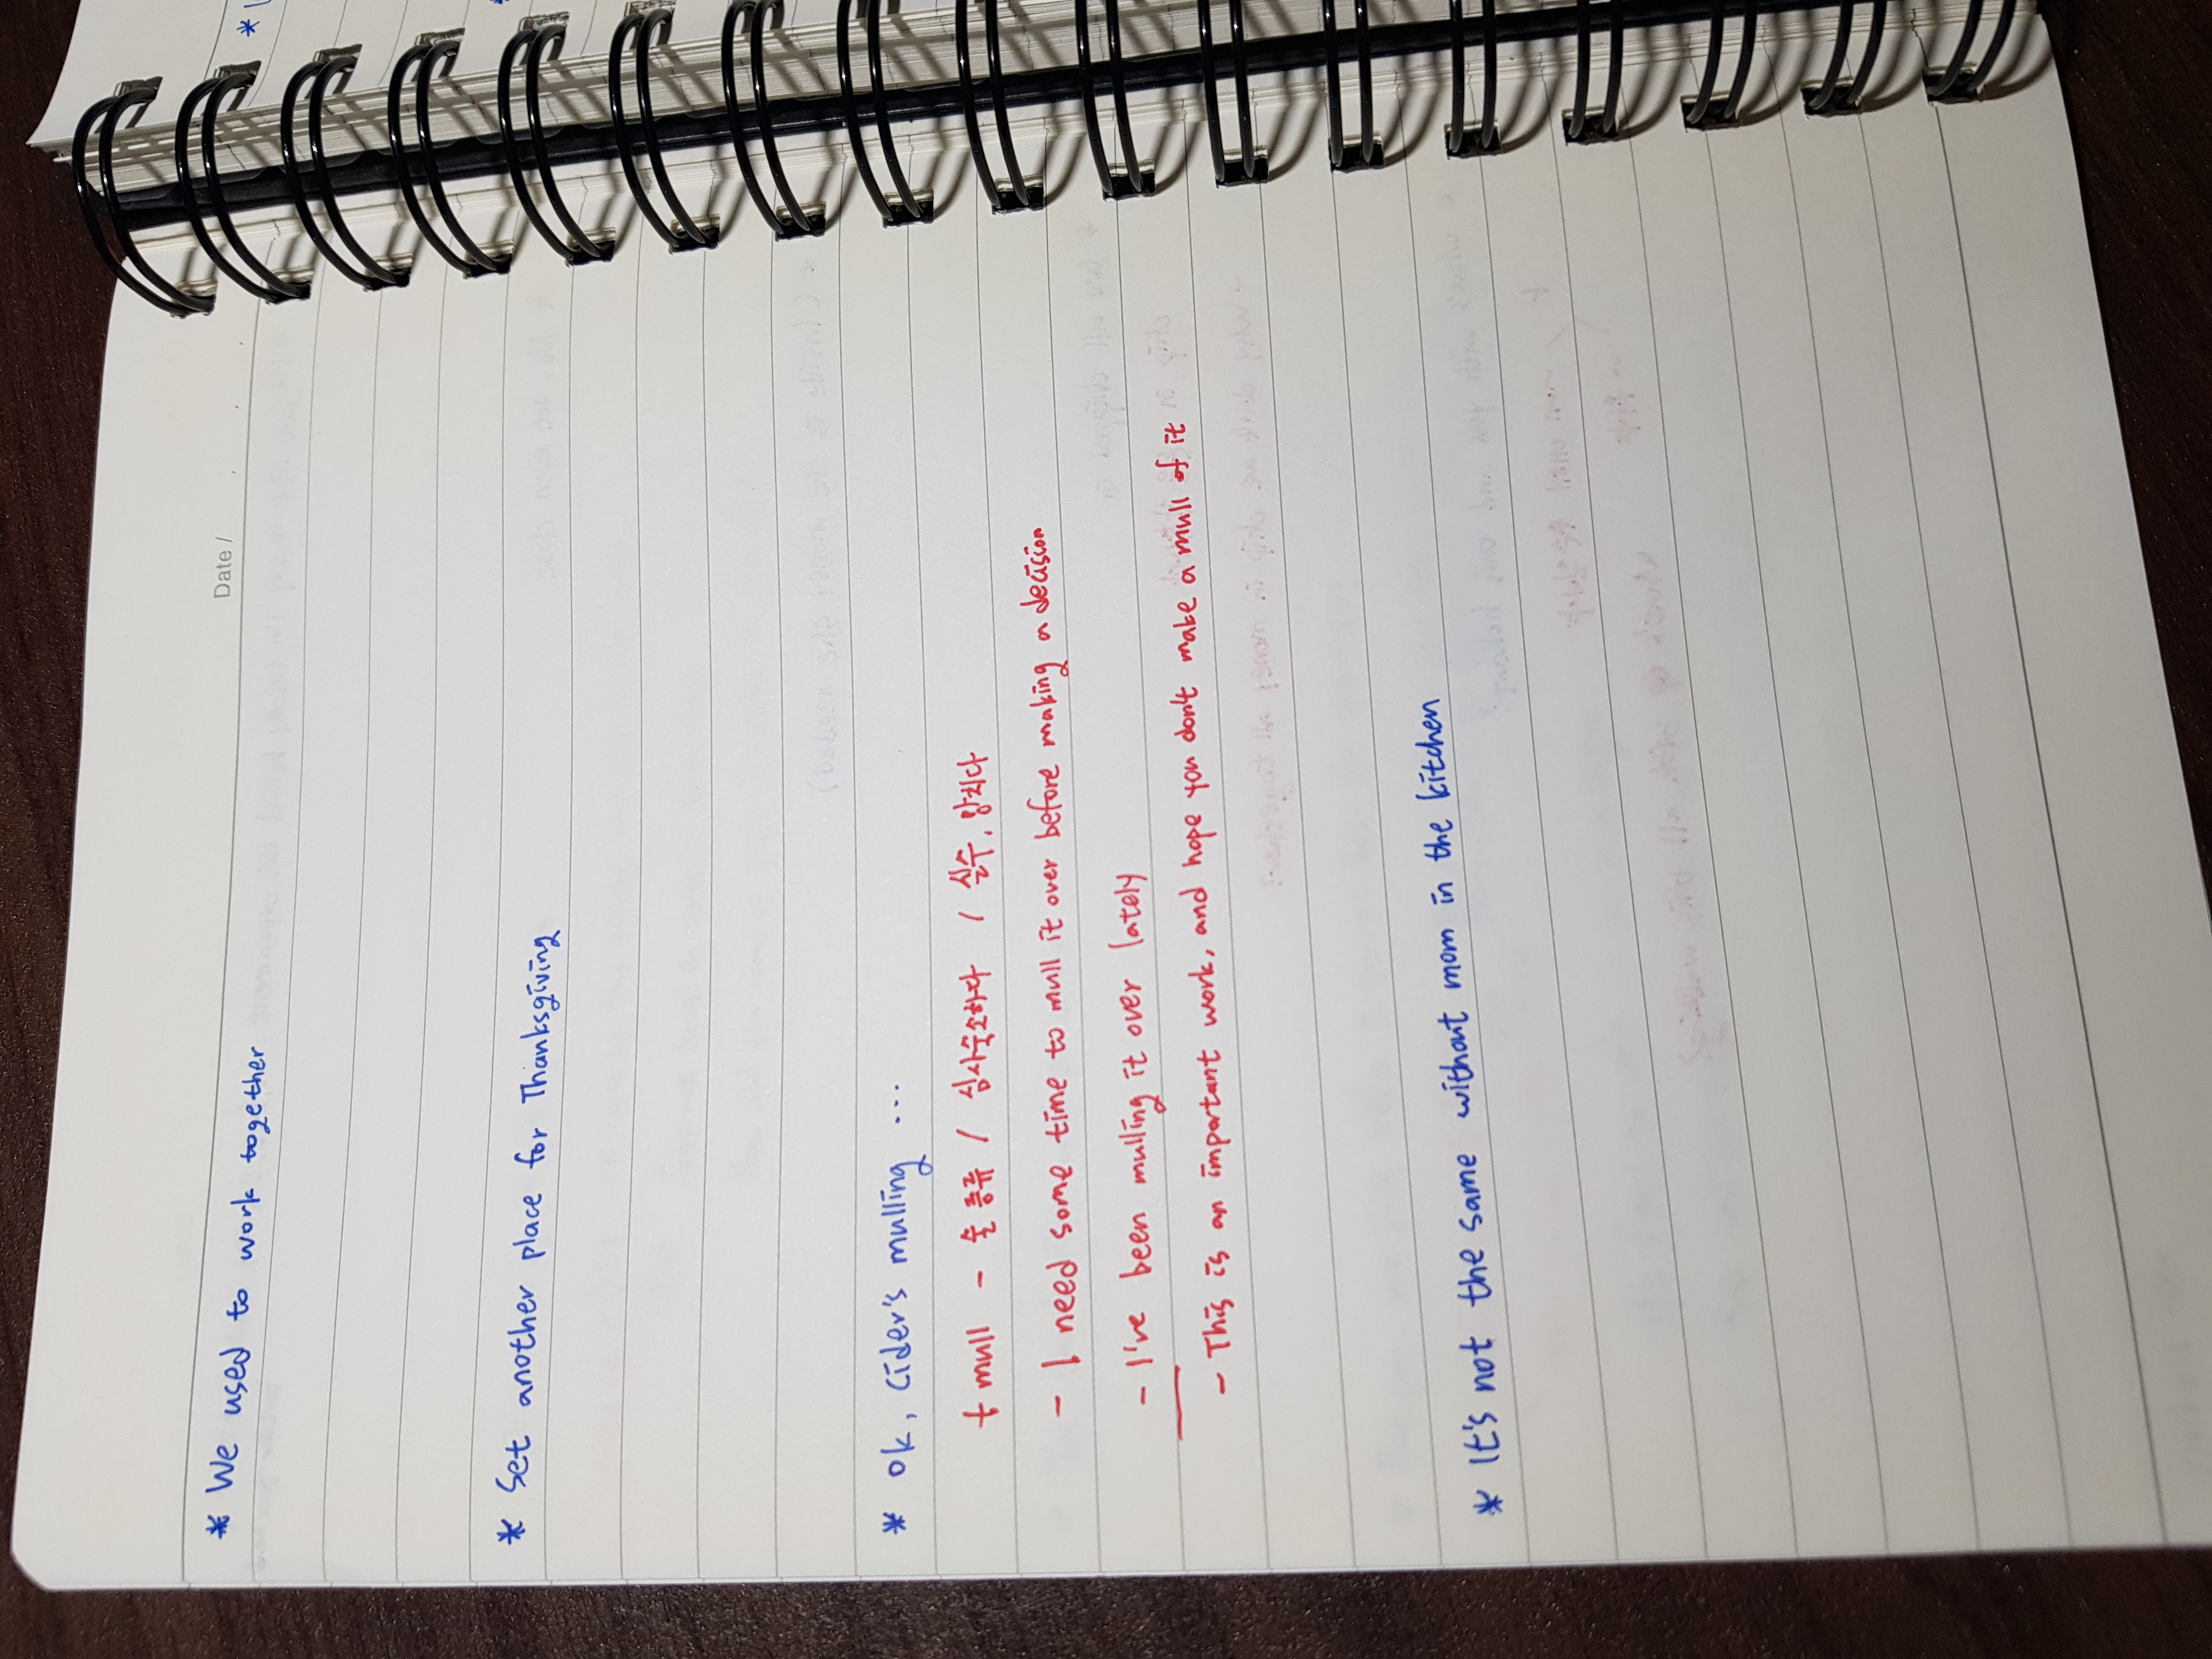 Date /
* We used to work together
* Set another place for Thanksgiving
* Ok, Cider's mulling ...
+ mull - 손 종류 / 심사숙고하다 / 실수, 망치다
- I need some time to mull it over before making a decision
- I've been mulling it over lately
- This is an important work, and hope you don't make a mull of it
* It's not the same without mom in the kitchen